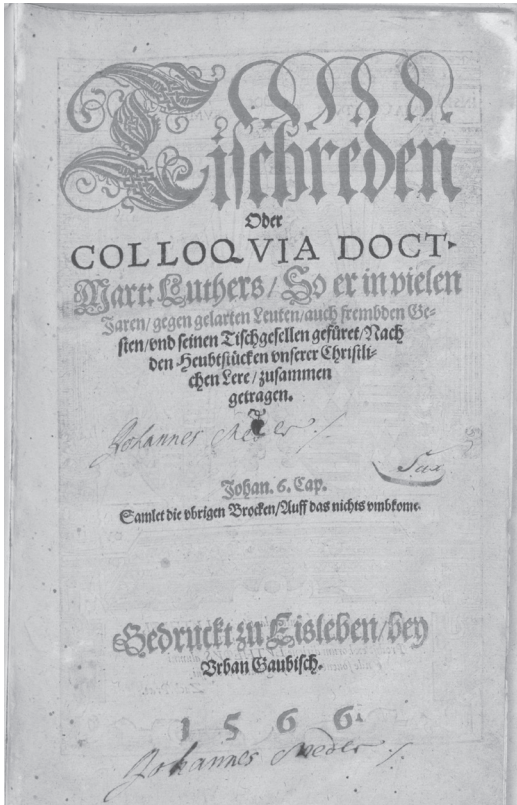 Tischreden
Oder
COLLOQVIA DOCT-
Mart: Luthers / So er in vielen
Jaren / gegen gelarten Leuten / auch frembden Ge-
sten / vnd seinen Tischgesellen gefüret / Nach
den Heubtstücken vnserer Christli-
chen Lere / zusammen
getragen.
Johannes Meder /.
Johan. 6. Cap.
Samlet die vbrigen Brocken / Auff das nichts vmbkome.
Gedruckt zu Eisleben / bey
Vrban Gaubisch.
1 5 6 6.
Johannes Meder /.